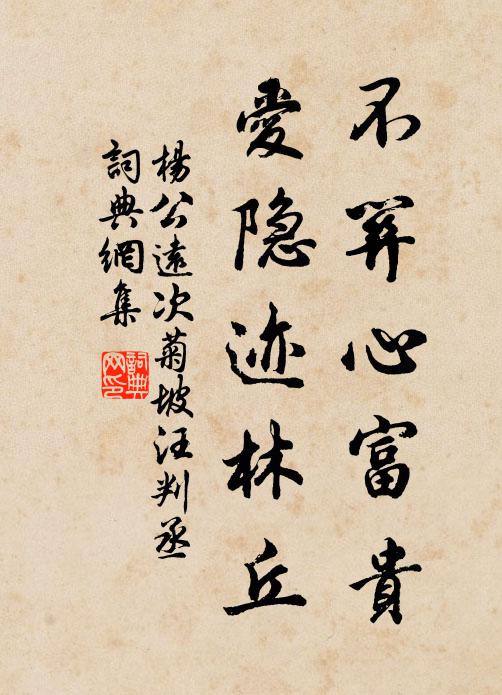 不關心富貴
愛隐迹林丘
楊公遠次菊坡汪判丞
詞典網集
詞典
网印